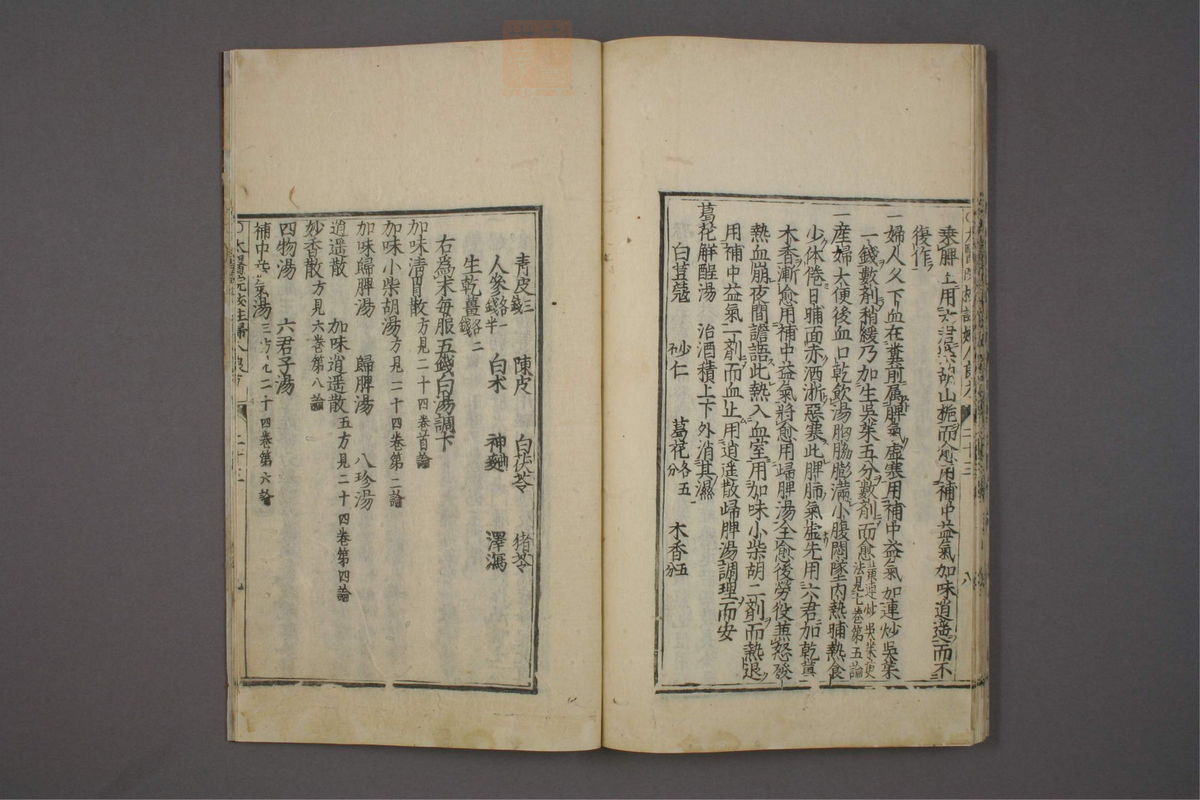 乘脾土用六君柴胡山梔而愈用補中益氣加味逍遥而不
復作
一婦人久下血在糞前属脾氣虛寒用補中益氣加連炒吳茱
一錢數剤稍緩乃加生吳茱五分數剤而愈黄連炒吳茱萸
法見七卷第五論
一産婦大便後血口乾飲湯胸膈膨滿小腹悶墜内熱晡熱食
少体倦日晡面赤洒淅惡寒此脾肺氣虛先用六君加乾薑
木香漸愈用補中益氣將愈用歸脾湯全愈後勞役兼怒發
熱血崩夜間譫語此熱入血室用加味小柴胡二剤而熱退
用補中益氣一剤而血止用逍遥散歸脾湯調理而安
葛花解酲湯 治酒積上下外消其濕
白荳蔻 砂仁 葛花各五分 木香五分
青皮三錢 陳皮 白茯苓 猪苓
人參各一錢半 白朮 神麯 澤瀉
生乾薑各二錢
右為末每服五錢白湯調下
加味清胃散方見二十四卷首論
加味小柴胡湯方見二十四卷第二論
加味歸脾湯 歸脾湯 八珍湯
逍遥散 加味逍遥散五方見二十四卷第四論
妙香散方見六卷第八論
四物湯 六君子湯
補中益氣湯三方見二十四卷第六論